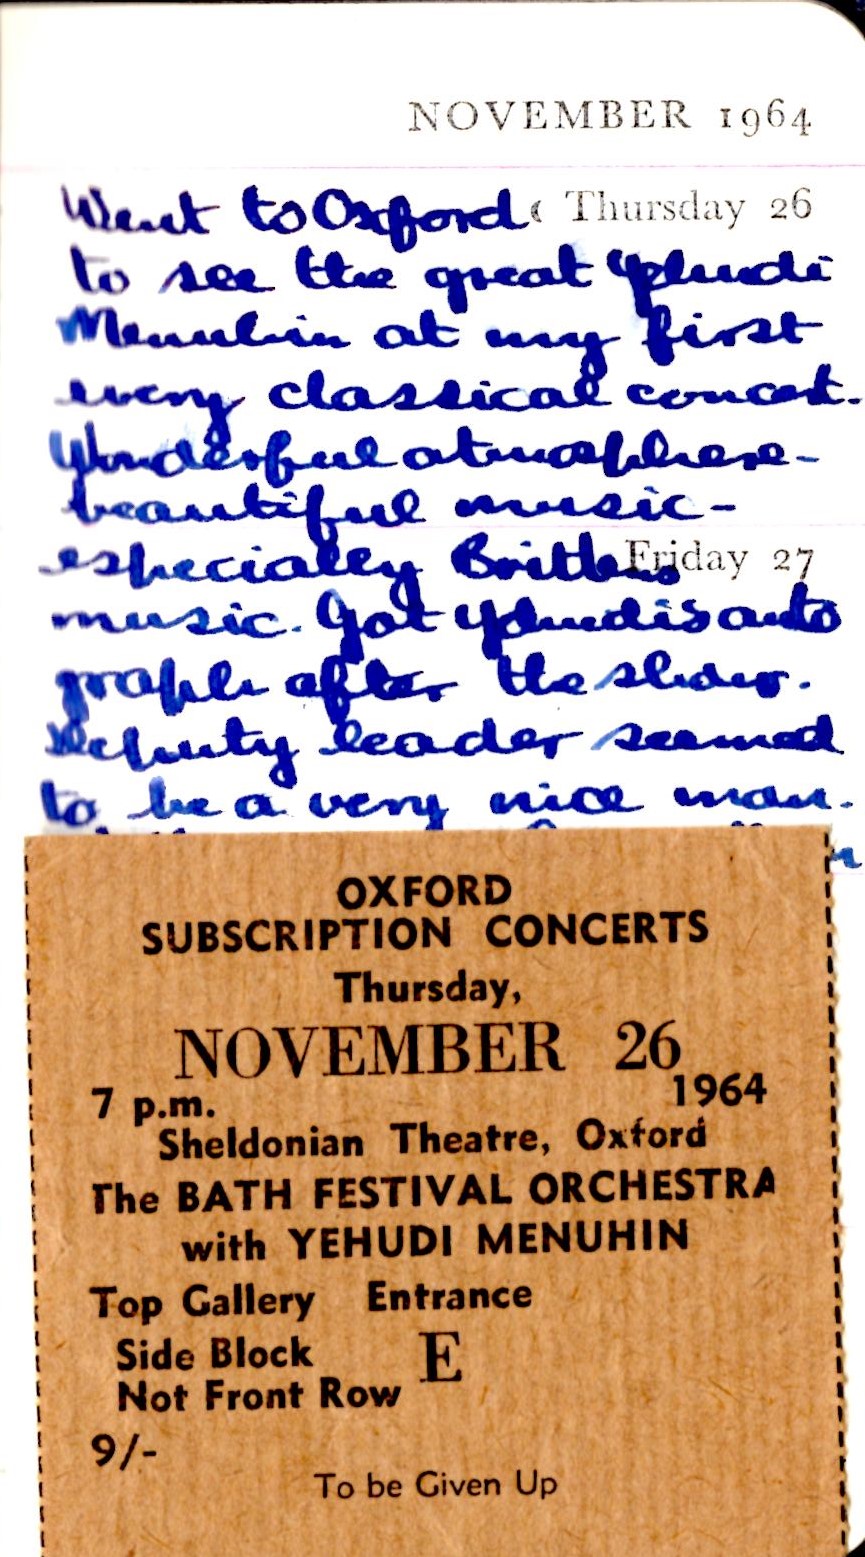 NOVEMBER 1964
Went to Oxford Thursday 26
to see the great Yehudi
Menuhin at my first
every classical concert.
Wonderful atmosphere -
beautiful music -
especially Brittens Friday 27
music. Got Yehudis auto
graph after the show.
Deputy leader seemed
to be a very nice man.
OXFORD
SUBSCRIPTION CONCERTS
Thursday,
NOVEMBER 26
7 p.m. 1964
Sheldonian Theatre, Oxford
The BATH FESTIVAL ORCHESTRA
with YEHUDI MENUHIN
Top Gallery Entrance
Side Block E
Not Front Row
9/-
To be Given Up